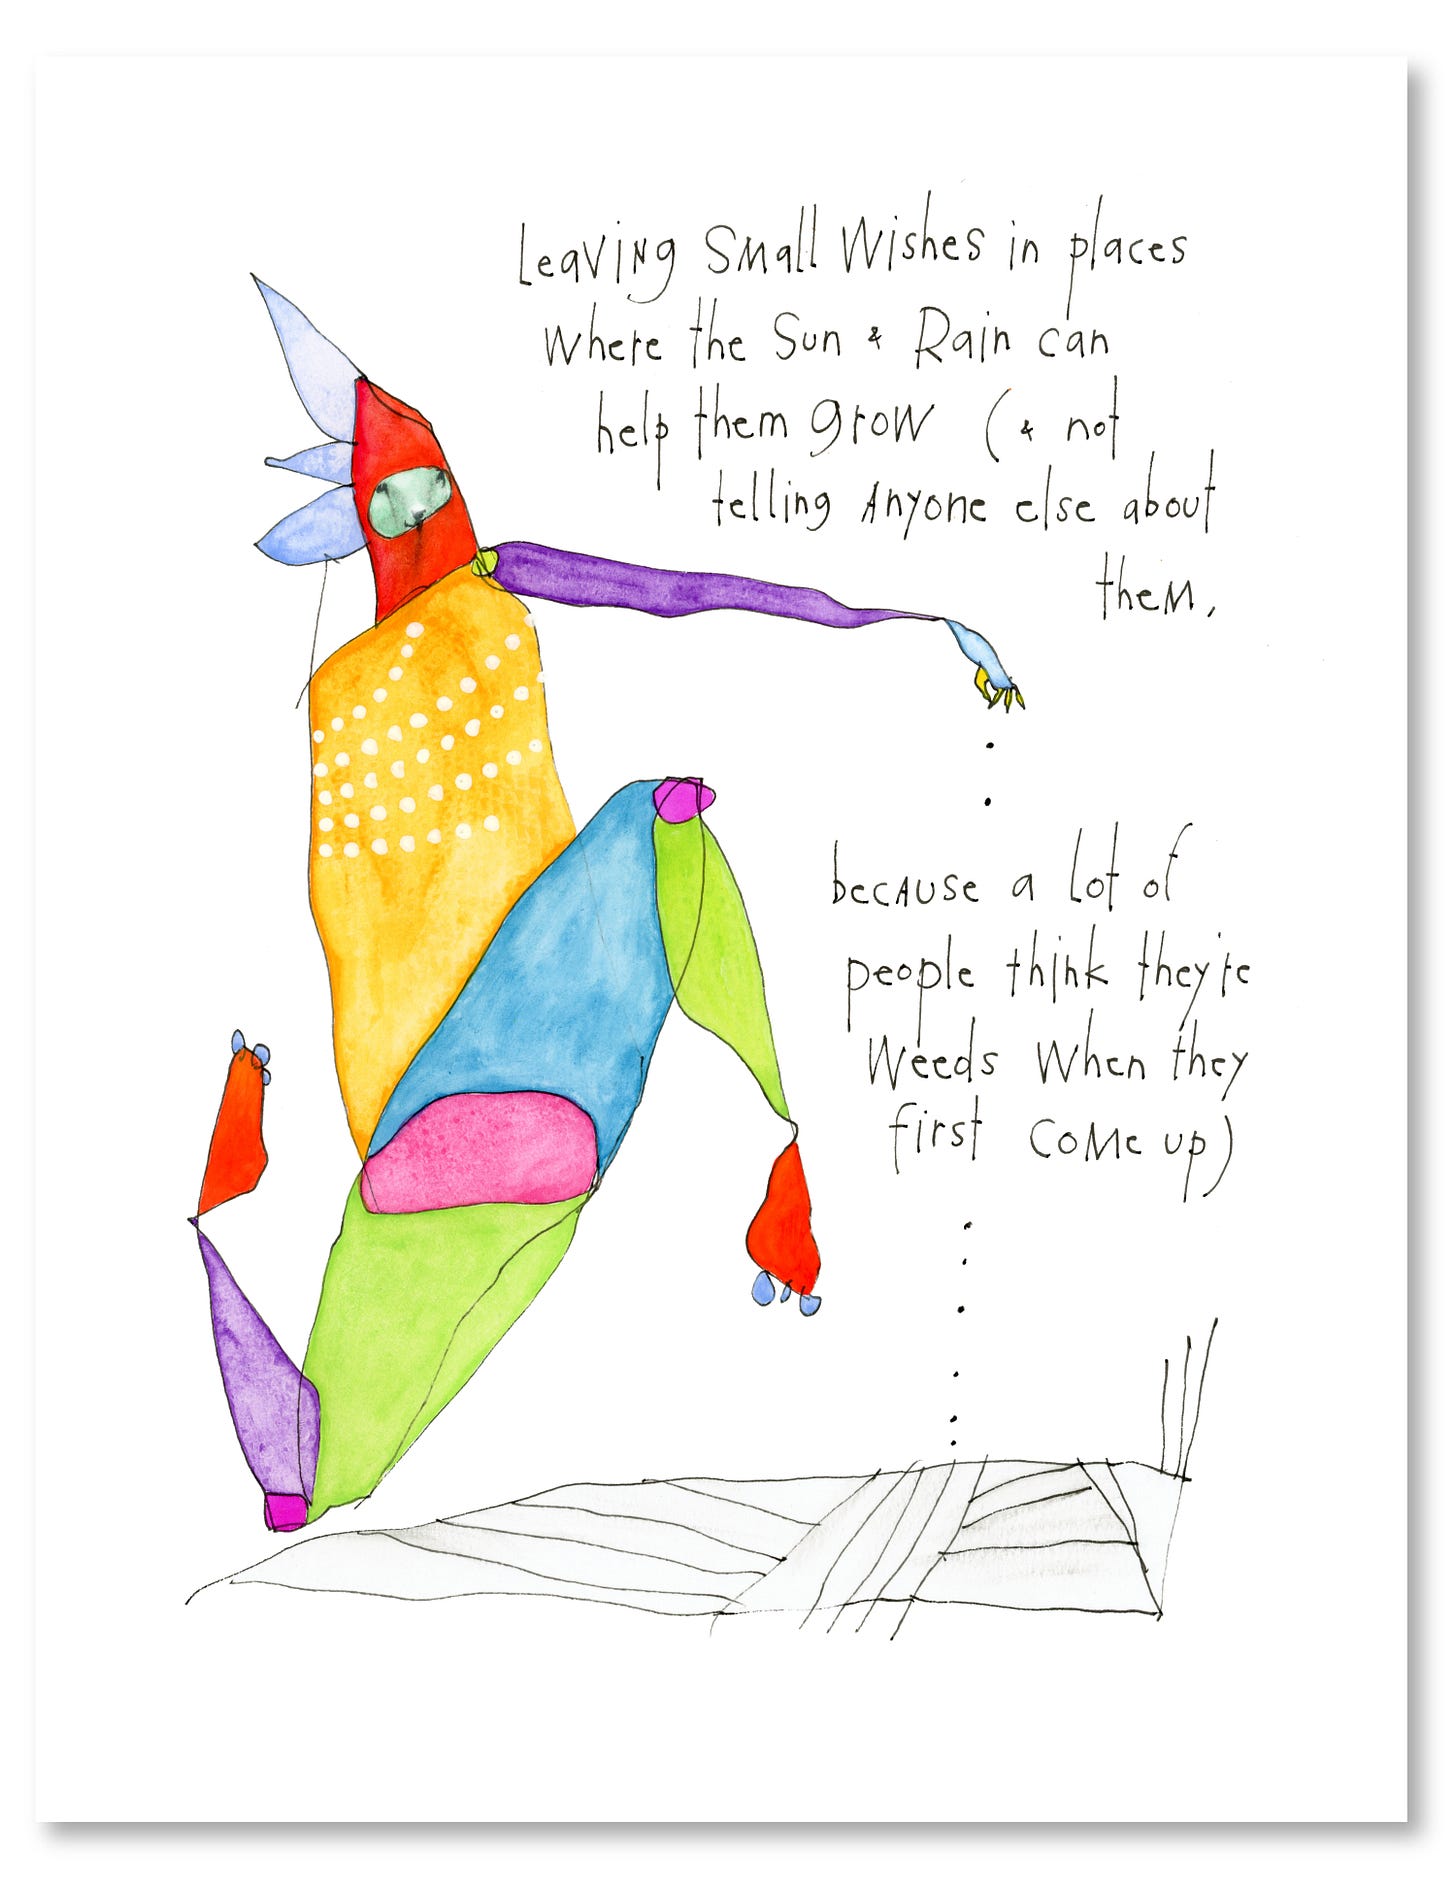 Leaving Small Wishes in places
where the Sun & Rain can
help them grow (& not
telling Anyone else about
them,
because a lot of
people think they're
Weeds when they
first come up)